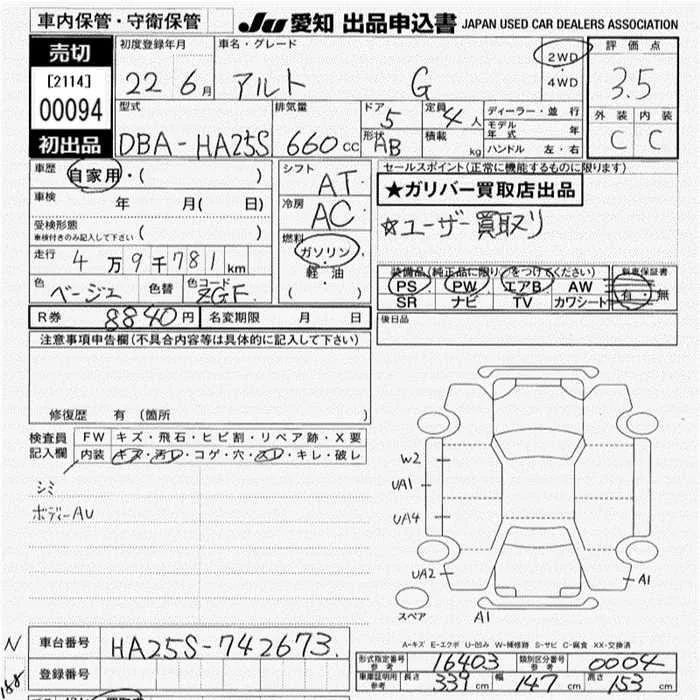 車内保管・守衛保管
JU 愛知 出品申込書 JAPAN USED CAR DEALERS ASSOCIATION
売切
[2114]
00094
初出品
初度登録年月
22 6月
車名・グレード
アルト G
2WD
4WD
評価点
3.5
外装 内装
C C
型式
DBA-HA25S
排気量
660cc
ドア 5
形状 AB
定員 4人
積載 kg
ディーラー・並行
モデル年式 年
ハンドル 左・右
車歴 自家用・( )
車検 年 月( 日)
受検形態
車検付きのみ記入して下さい ( )
走行 4万9千781km
色 ベージュ 色替 色コード ZGF
シフト
AT
冷房
AC
燃料
ガソリン
軽油
( )
セールスポイント(正常に機能するものに限ります)
★ガリバー買取店出品
☆ユーザー買取り
装備品(純正品に限り○をつけてください)
PS PW エアB AW
SR ナビ TV カワシート
新車保証書
有・無
R券 8840円 名変期限 月 日
後日品
注意事項申告欄(不具合内容等は具体的に記入して下さい)
修復歴 有(箇所 )
検査員記入欄
FW キズ・飛石・ヒビ割・リペア跡・X要
内装 キズ・汚レ・コゲ・穴・スレ・キレ・破レ
シミ
ボディーAU
W2
UA1
UA4
UA2
A1
スペア
A1
A-キズ E-エクボ U-凹み W-補修跡 S-サビ C-腐食 XX-交換済
N
車台番号 HA25S-742673.
登録番号
型式指定番号 参考 16403 類別区分番号 参考 0004
車庫証明用 参考 長さ 339cm 幅 147cm 高さ 153cm